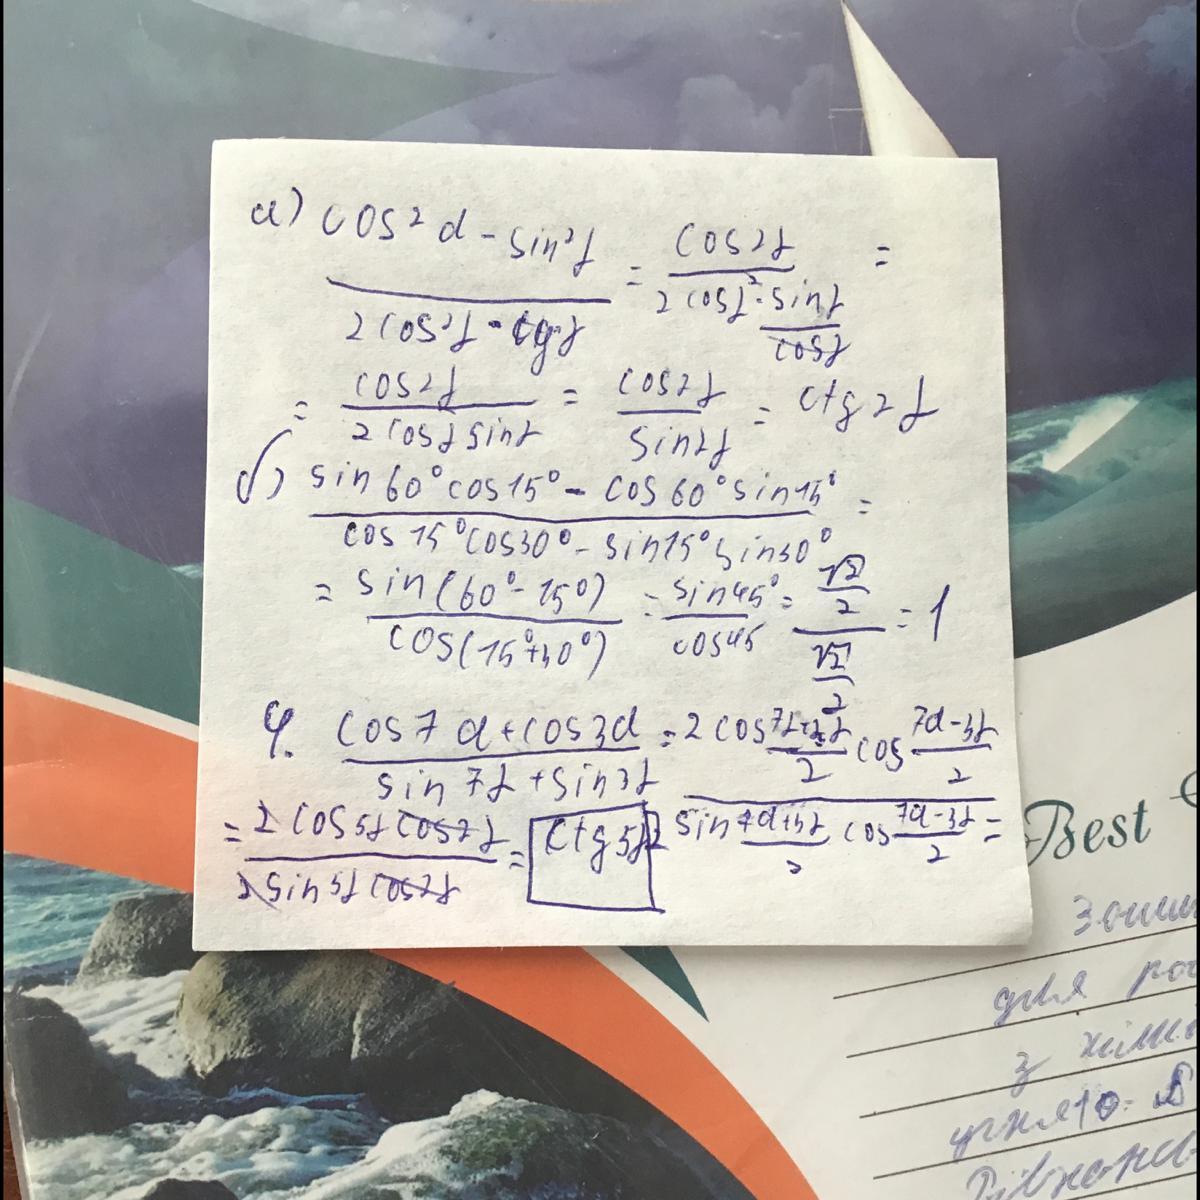 а) cos²α - sin²α / 2cos²α · tgα = cos2α / 2cosα² · sinα/cosα =
= cos2α / 2cosα sinα = cos2α / sin2α = ctg2α
б) sin60°cos15° - cos60°sin15° / cos15°cos30° - sin15°sin30° =
= sin(60° - 15°) / cos(15°+30°) = sin45° / cos45 = √2/2 / √2/2 = 1
4. cos7α + cos3α / sin7α + sin3α = 2cos 7α+3α/2 cos 7α-3α/2 / 2 sin 7α+3α/2 cos 7α-3α/2 =
= 2cos5α cos2α / 2sin5α cos2α = ctg5α
Best
Зоши
для ро
з хімі
учня 10-